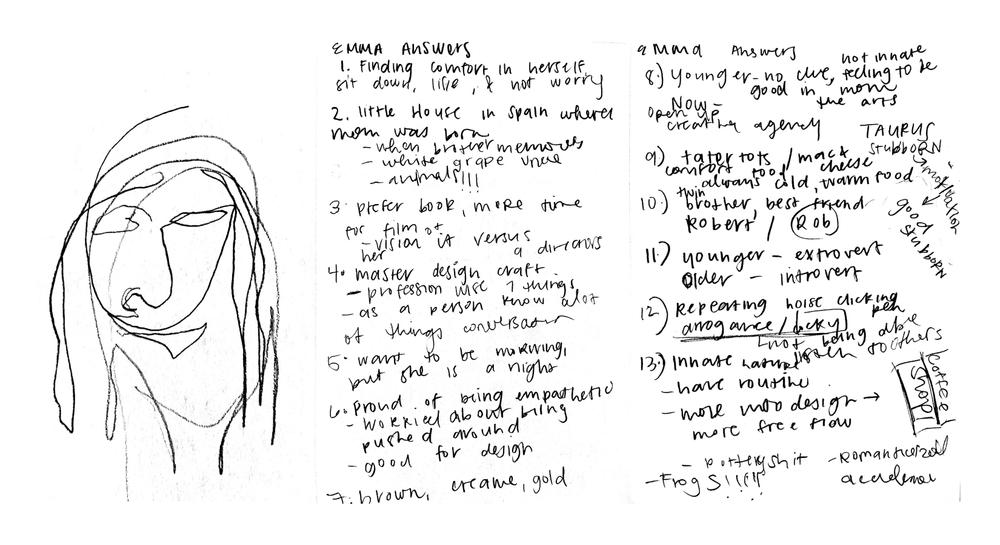 EMMA ANSWERS
1. Finding comfort in herself
sit down, live, & not worry
2. little House in Spain where
mom was born
- when brother memories
- white grape vine
- animals!!!!
3. prefer book, more time
for film of
- vision it versus a directors
her
4. master design craft
- profession wise 7 things
- as a person know alot
of things conversation
5. want to be morning,
but she is a night
6. Proud of being empathetic
- worried about being
pushed around
- good for design
7. brown, creame, gold
Emma Answers
8.) younger - no clue, feeling to be
not innate
good in more
the arts
Now -
open up
creative agency
TAURUS
stubbORN
motivation
good
stubborn
9) tater tots / mack cheese
comfort food
always cold, warm food
10.) twin brother, best friend
Robert / Rob
11.) younger - extrovert
Older - introvert
12.) Repeating noise clicking pen
arrogance / cocky
not being able
listen to others
13.) Innate nature
- have routine
- more into design →
more free flow
coffee
shop
- pottery shit
- Romanticized
academia
- Frogs!!!!!